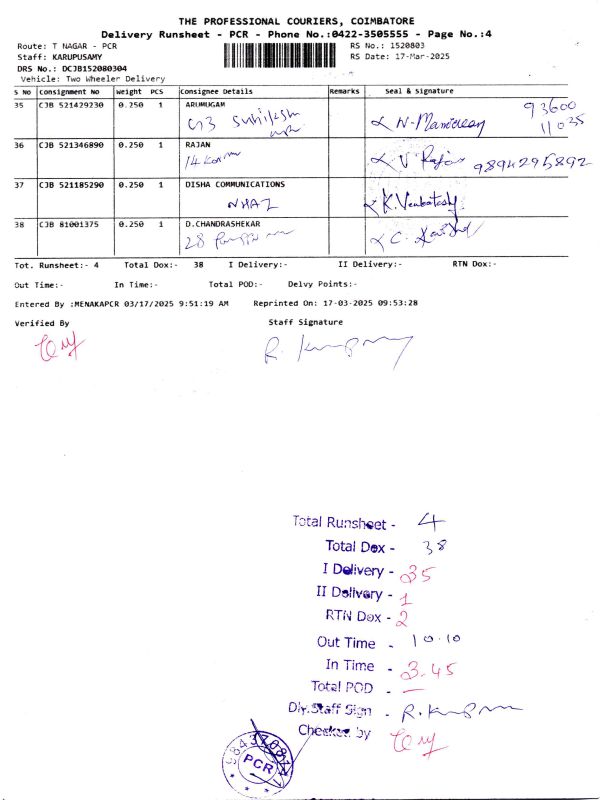 THE PROFESSIONAL COURIERS, COIMBATORE
Delivery Runsheet - PCR - Phone No.:0422-3505555 - Page No.:4
Route: T NAGAR - PCR
RS No.: 1520803
Staff: KARUPUSAMY
RS Date: 17-Mar-2025
DRS No.: DCJB152080304
Vehicle: Two Wheeler Delivery
S No Consignment No Weight PCS Consignee Details Remarks Seal & Signature
35 CJB 521429230 0.250 1 ARUMUGAM
93600
11035
36 CJB 521346890 0.250 1 RAJAN
14
V Raja 9894295892
37 CJB 521185290 0.250 1 DISHA COMMUNICATIONS
K.Venkatesh
38 CJB 81001375 0.250 1 D.CHANDRASHEKAR
28
C.
Tot. Runsheet:- 4 Total Dox:- 38 I Delivery:- II Delivery:- RTN Dox:-
Out Time:- In Time:- Total POD:- Delvy Points:-
Entered By :MENAKAPCR 03/17/2025 9:51:19 AM Reprinted On: 17-03-2025 09:53:28
Verified By Staff Signature
Total Runsheet - 4
Total Dox - 38
I Delivery - 35
II Delivery - 1
RTN Dox - 2
Out Time - 10.10
In Time - 3.45
Total POD - —
Dly.Staff Sign -
Checked by
PCR